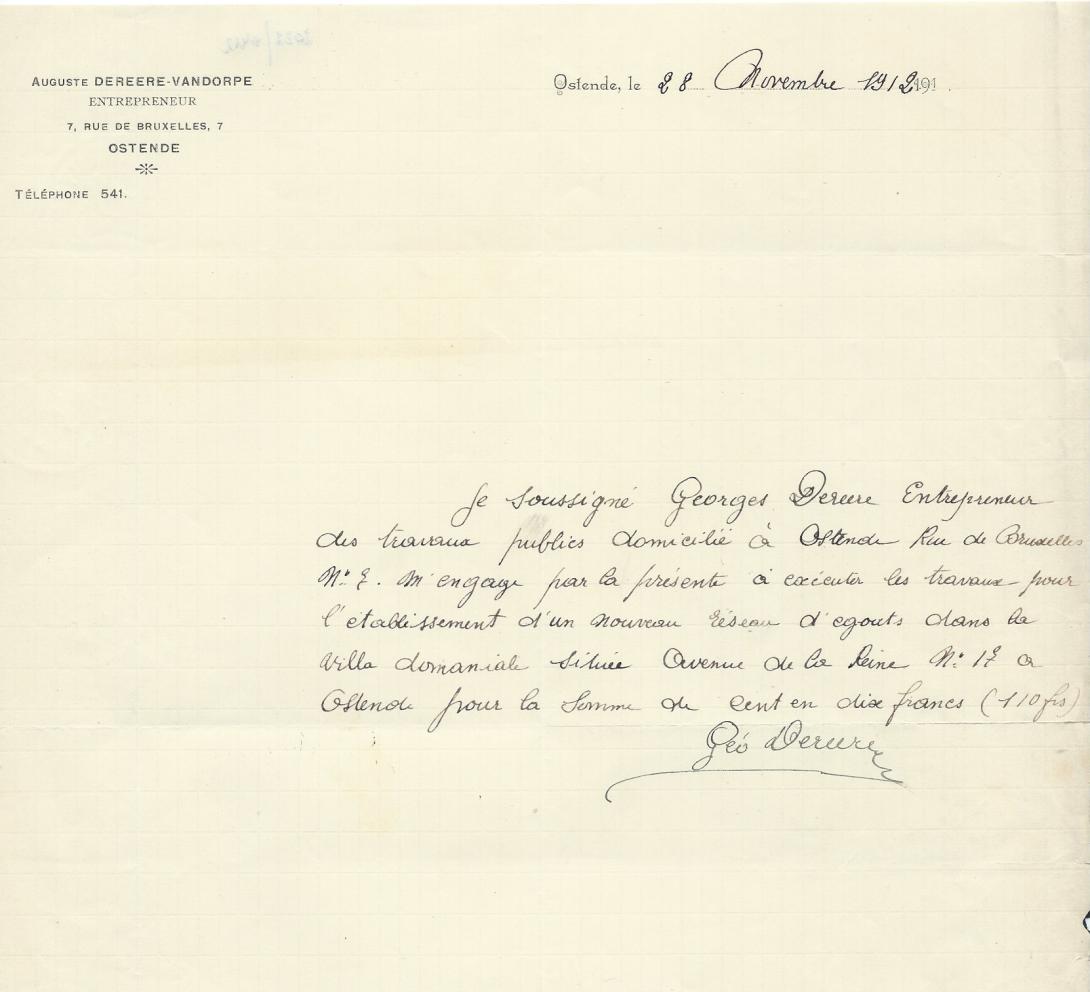 Auguste DEREERE-VANDORPE
ENTREPRENEUR
7, RUE DE BRUXELLES, 7
OSTENDE
TÉLÉPHONE 541.
Ostende, le 28 Novembre 1912 191
Je soussigné Georges Dereere Entrepreneur
des travaux publics domicilié à Ostende Rue de Bruxelles
N° 7. M'engage par la présente à exécuter les travaux pour
l'établissement d'un nouveau réseau d'egouts dans la
villa domaniale située Avenue de la Reine N° 17 a
Ostende pour la somme de cent en dix francs (110 frs)
Géo Dereere